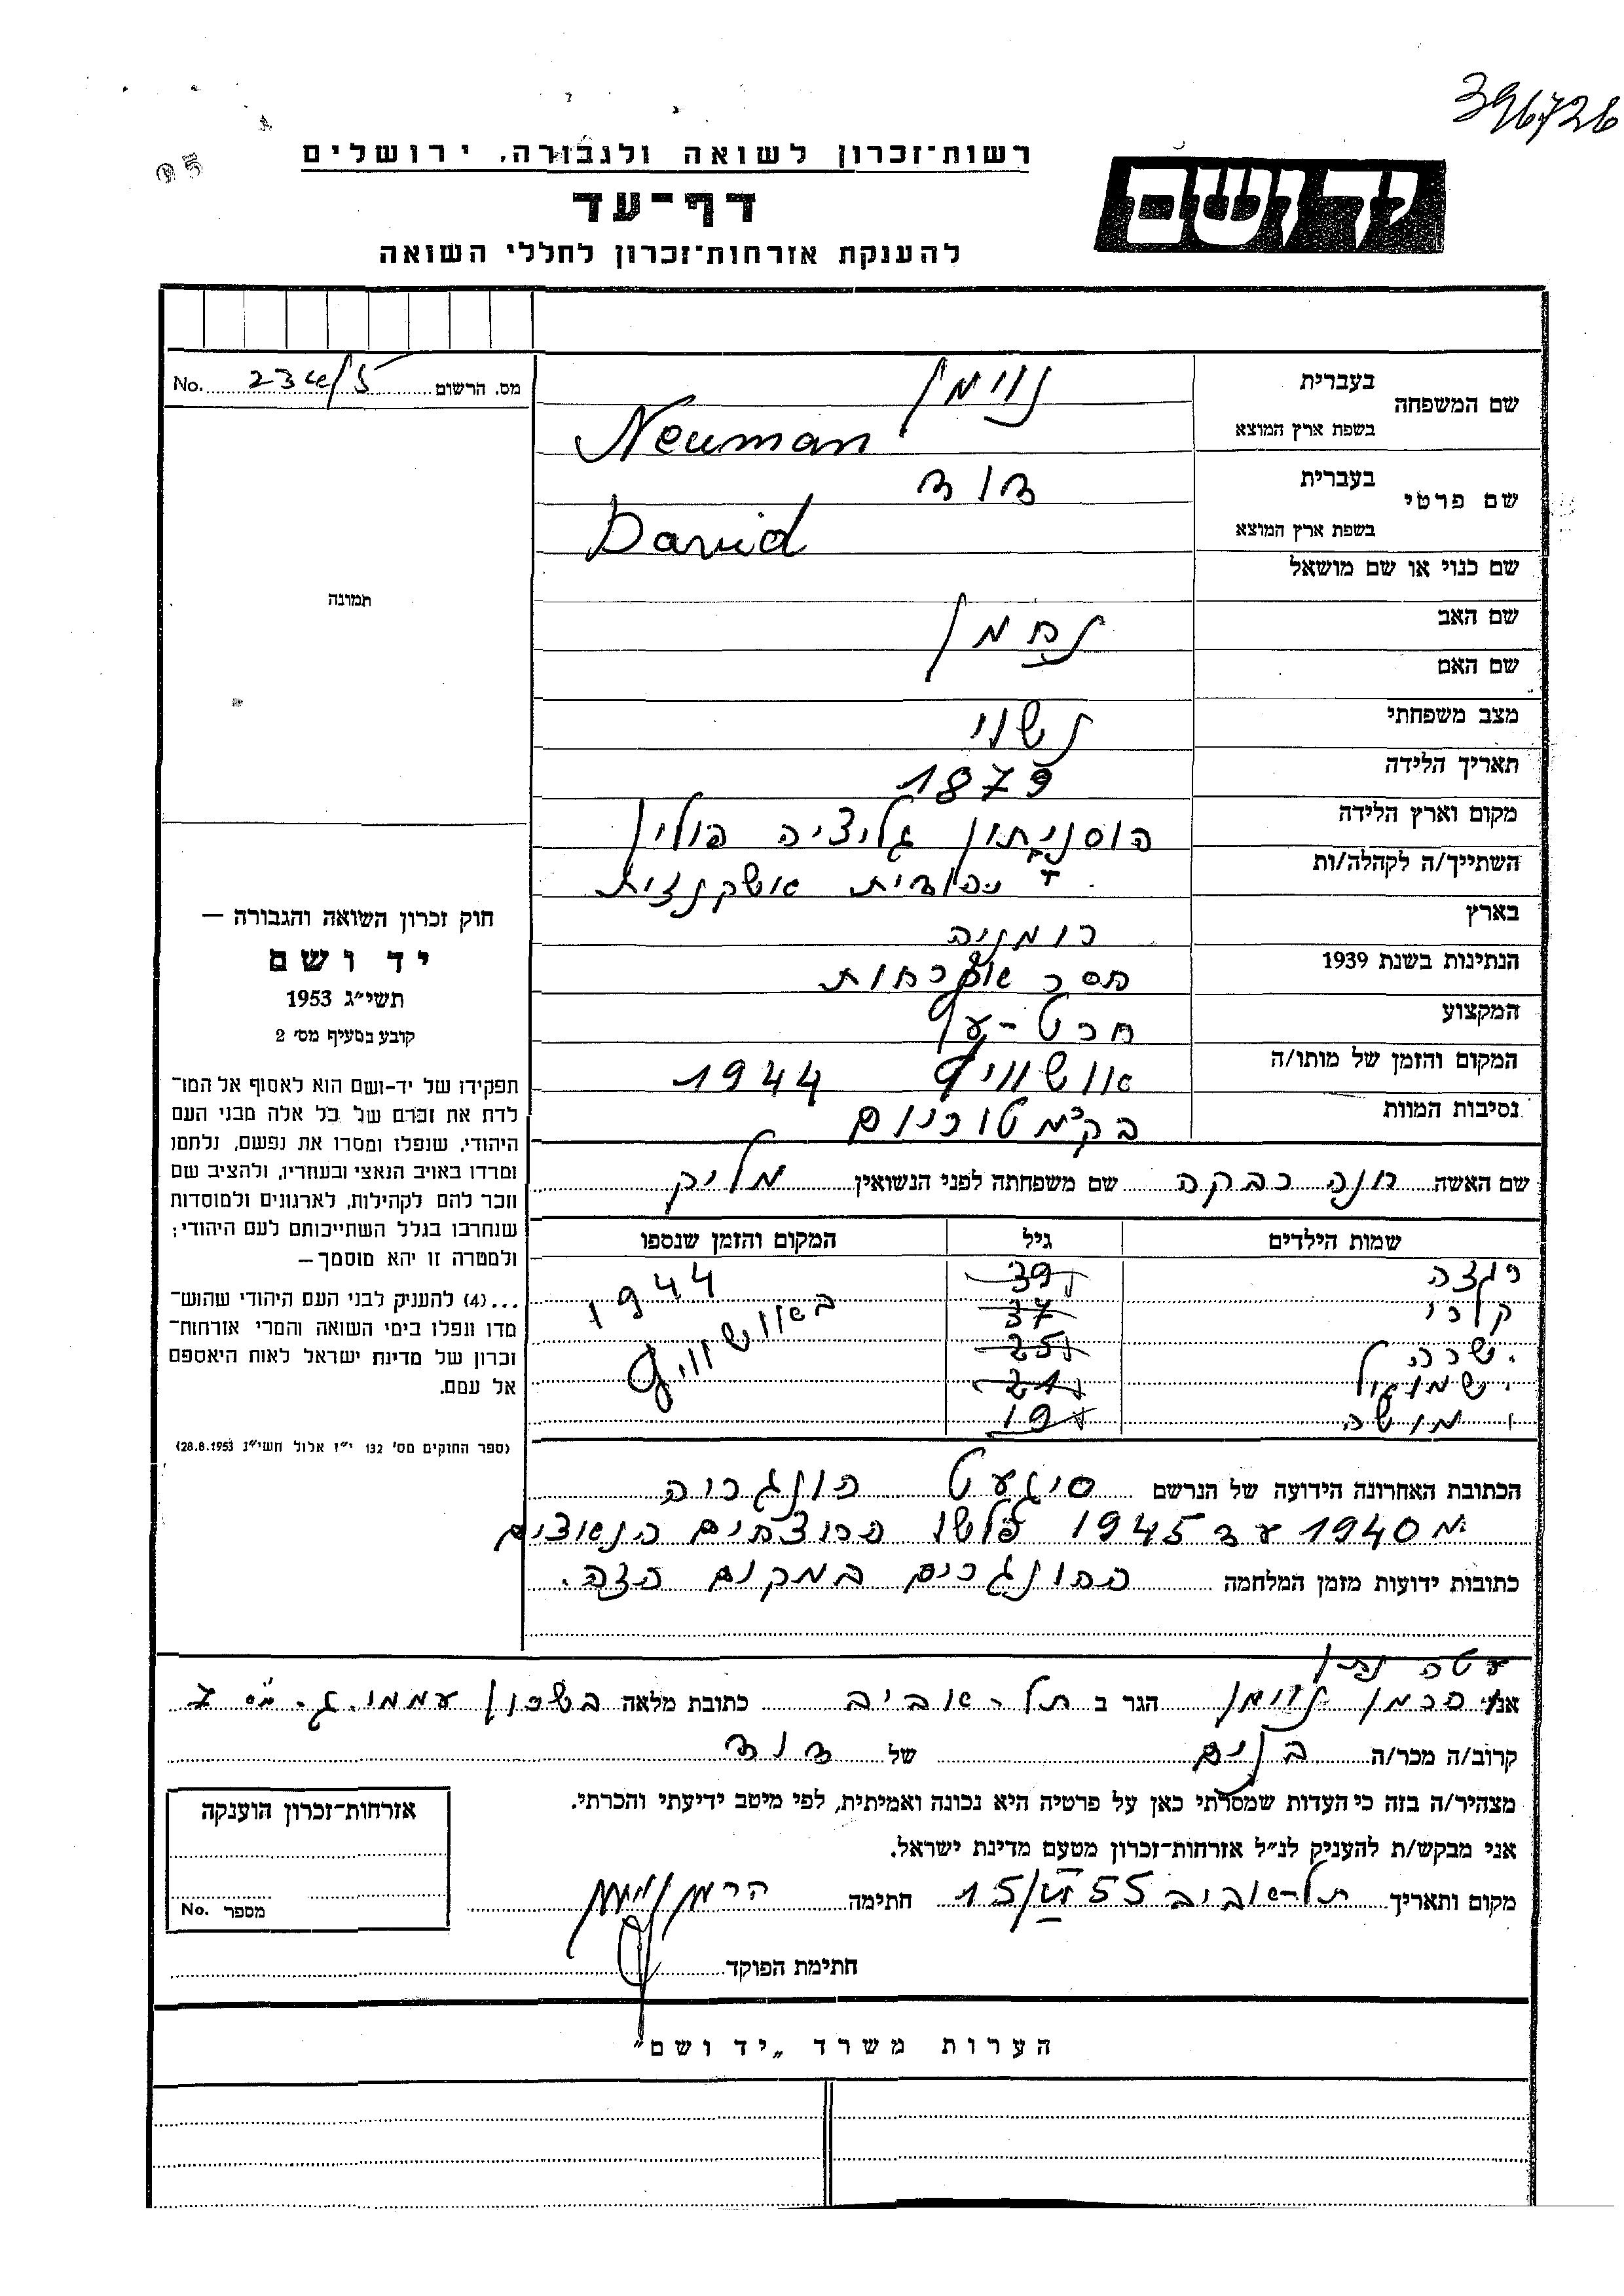 396726
רשות־זכרון לשואה ולגבורה, ירושלים
יד ושם
דף־עד
להענקת אזרחות־זכרון לחללי השואה
מס. הרשום No.
שם המשפחה
בעברית נוימן
בשפת ארץ המוצא Neuman
שם פרטי
בעברית דוד
בשפת ארץ המוצא David
שם כנוי או שם מושאל
שם האב נחמן
שם האם
מצב משפחתי נשוי
תאריך הלידה 1879
מקום וארץ הלידה גליציה פולין
השתייך/ה לקהלה/ות יהודית אשקנזית
בארץ רומניה
הנתינות בשנת 1939 חסר אזרחות
המקצוע חרט-עץ
המקום והזמן של מותו/ה אושוויץ 1944
נסיבות המוות
שם האשה חנה רבקה שם משפחתה לפני הנשואין מליק
שמות הילדים גיל המקום והזמן שנספו
39 1944
37 באושוויץ
שרה 25
שמואל 21
משה 19
הכתובת האחרונה הידועה של הנרשם סיגעט הונגריה
מ 1940 עד 1945 פלשו הרוצחים הנאצים
כתובות ידועות מזמן המלחמה ההונגרים במקום הזה.
אני הרמן נוימן הגר ב תל-אביב כתובת מלאה בשכון עממי ג. מס 7
קרוב/ה מכר/ה של דוד
מצהיר/ה בזה כי העדות שמסרתי כאן על פרטיה היא נכונה ואמיתית, לפי מיטב ידיעתי והכרתי.
אני מבקש/ת להעניק לנ״ל אזרחות־זכרון מטעם מדינת ישראל.
מקום ותאריך תל-אביב 15/VI 55 חתימה הרמן נוימן
חתימת הפוקד
תמונה
חוק זכרון השואה והגבורה —
יד ושם
תשי״ג 1953
קובע בסעיף מס׳ 2
תפקידו של יד-ושם הוא לאסוף אל המו־
לדת את זכרם של כל אלה מבני העם
היהודי, שנפלו ומסרו את נפשם, נלחמו
ומרדו באויב הנאצי ובעוזריו, ולהציב שם
וזכר להם לקהילות, לארגונים ולמוסדות
שנחרבו בגלל השתייכותם לעם היהודי;
ולמטרה זו יהא מוסמך —
...(4) להעניק לבני העם היהודי שהוש־
מדו ונפלו בימי השואה והמרי אזרחות־
זכרון של מדינת ישראל לאות היאספם
אל עמם.
(ספר החוקים מס׳ 132 י״ז אלול תשי״ג 28.8.1953)
אזרחות־זכרון הוענקה
מספר No.
הערות משרד „יד ושם״